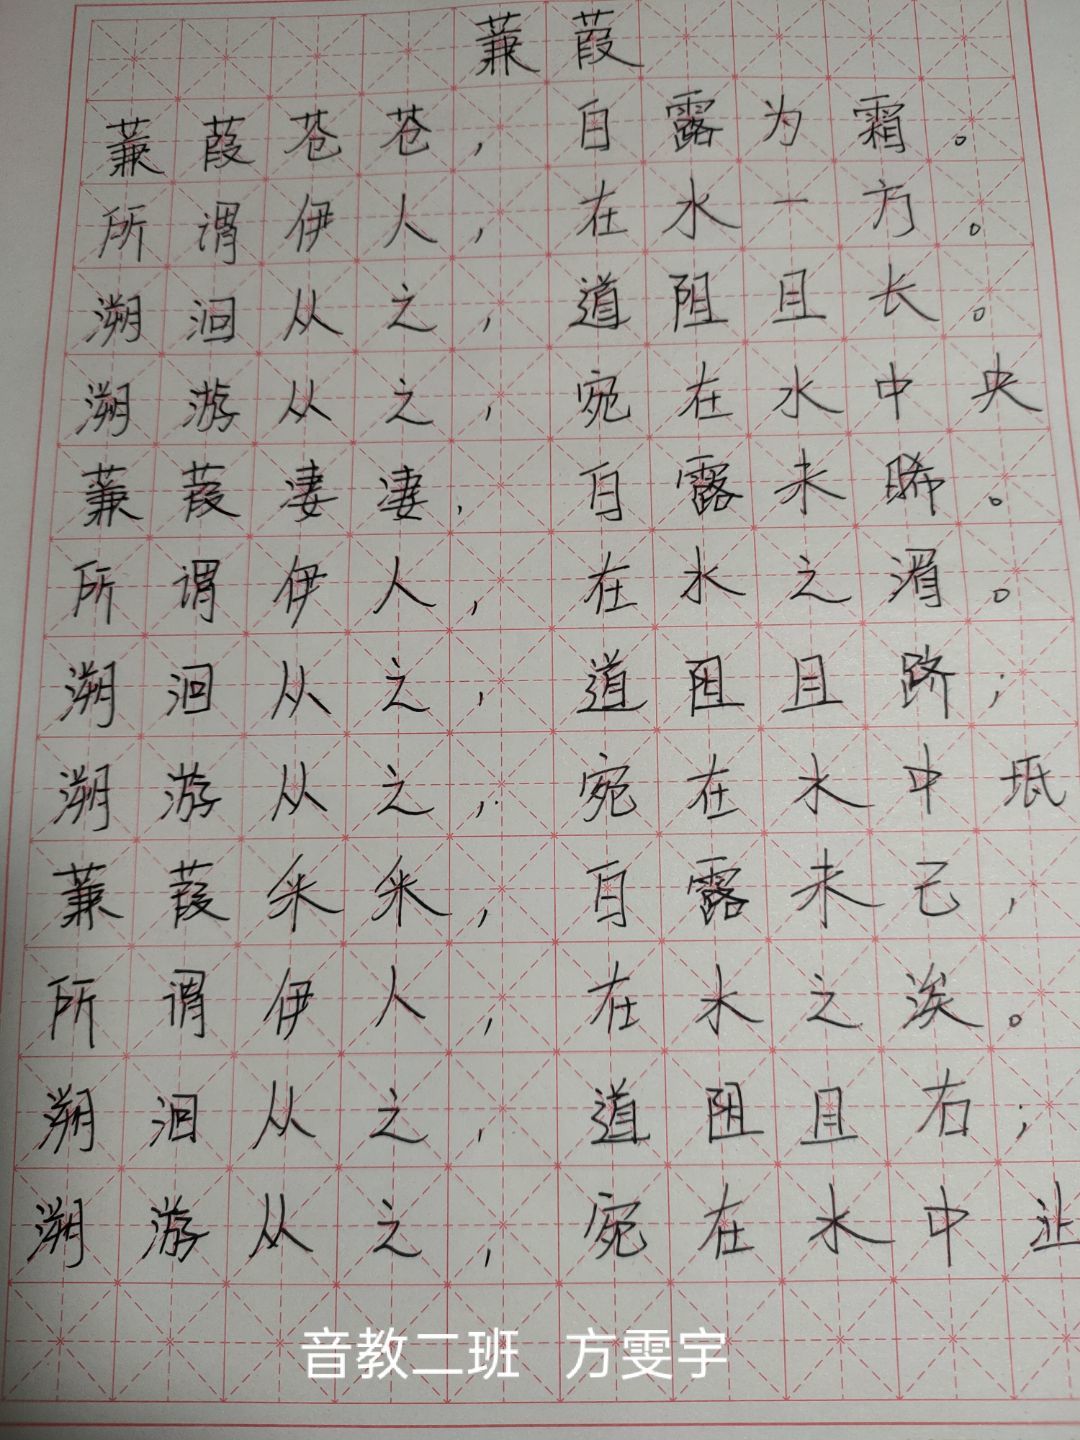 蒹葭
蒹葭苍苍，白露为霜。
所谓伊人，在水一方。
溯洄从之，道阻且长。
溯游从之，宛在水中央
蒹葭凄凄，白露未晞。
所谓伊人，在水之湄。
溯洄从之，道阻且跻；
溯游从之，宛在水中坻
蒹葭采采，白露未已，
所谓伊人，在水之涘。
溯洄从之，道阻且右；
溯游从之，宛在水中沚
音教二班 方雯宇